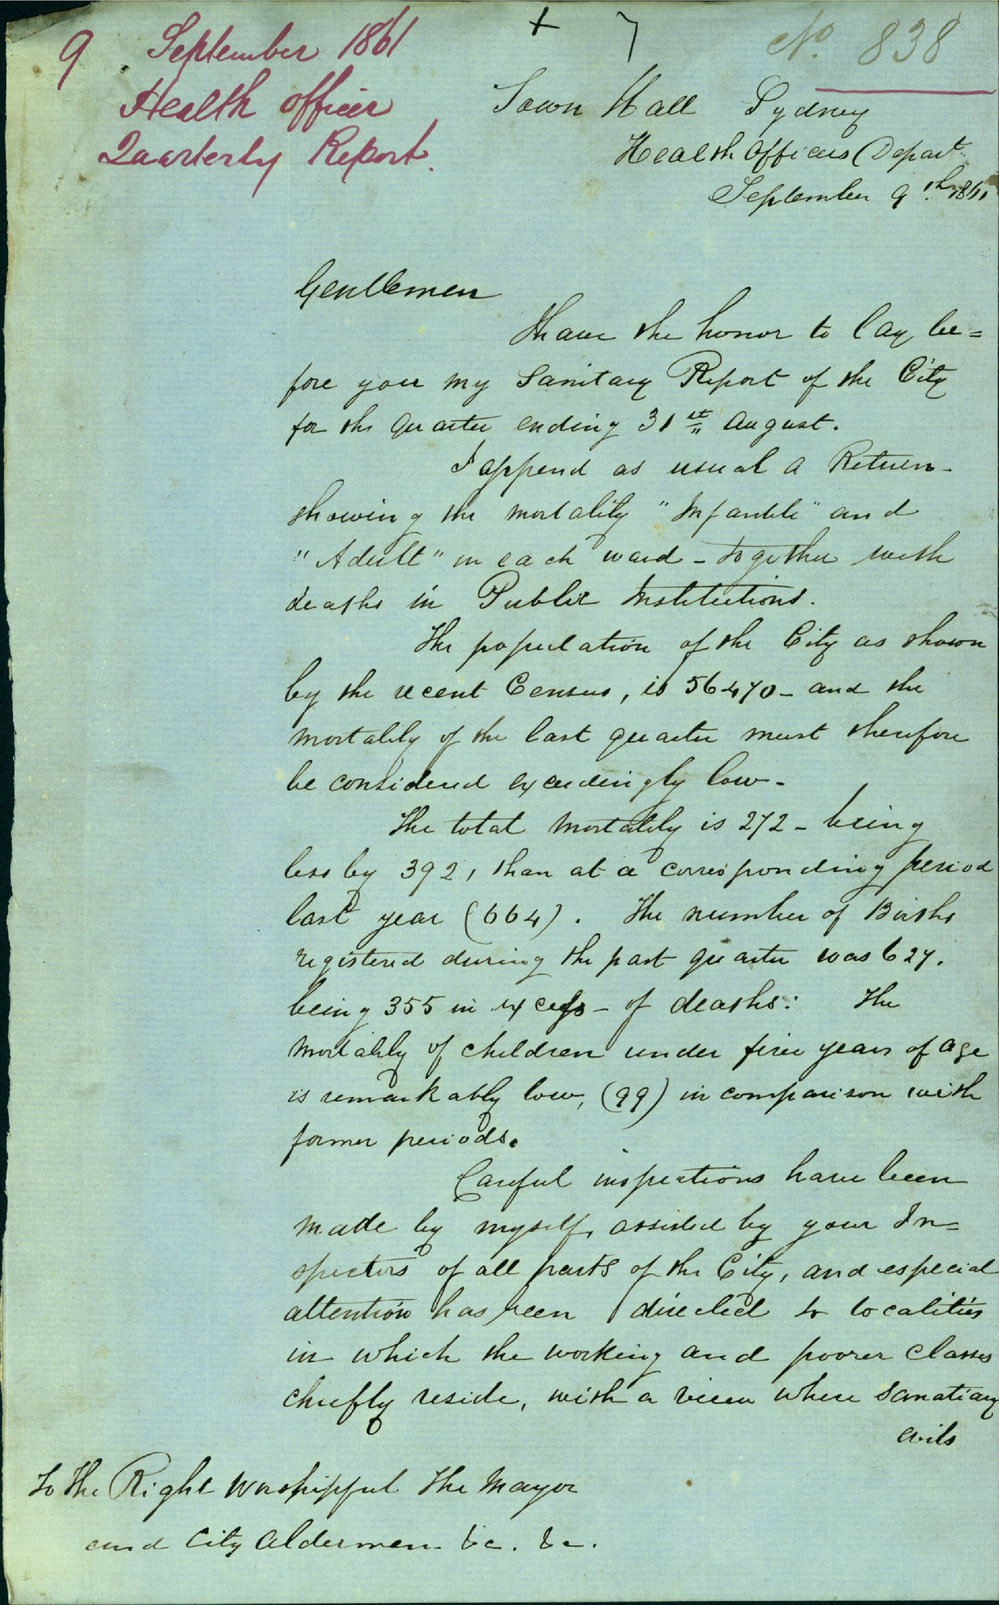 9 September 1861
Health Officer
Quarterly Report.
+ 7
No. 838
Town Hall Sydney
Health Officers Depart.
September 9th 1861
Gentlemen
I have the honor to lay be=
fore you my Sanitary Report of the City
for the Quarter ending 31st August.
I append as usual a Return -
showing the mortality "Infantile" and
"Adult" in each ward - together with
deaths in Public Institutions.
The population of the City as shown
by the recent Census, is 56470 - and the
mortality of the last quarter must therefore
be considered exceedingly low -
The total mortality is 272 - being
less by 392, than at a corresponding period
last year (664). The number of Births
registered during the past quarter was 627.
being 355 in excess - of deaths: The
mortality of children under five years of age
is remarkably low, (99) in comparison with
former periods.
Careful inspections have been
made by myself, assisted by your In=
spectors of all parts of the City, and especial
attention has been directed to localities
in which the working and poorer classes
chiefly reside, with a view where Sanatiary
evils
To The Right Worshipful The Mayor
and City Aldermen &c. &c.